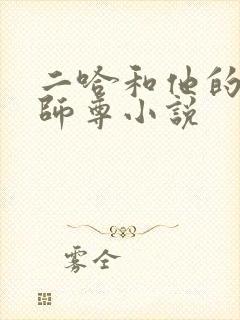 二哈和他的
師尊小説
雾全